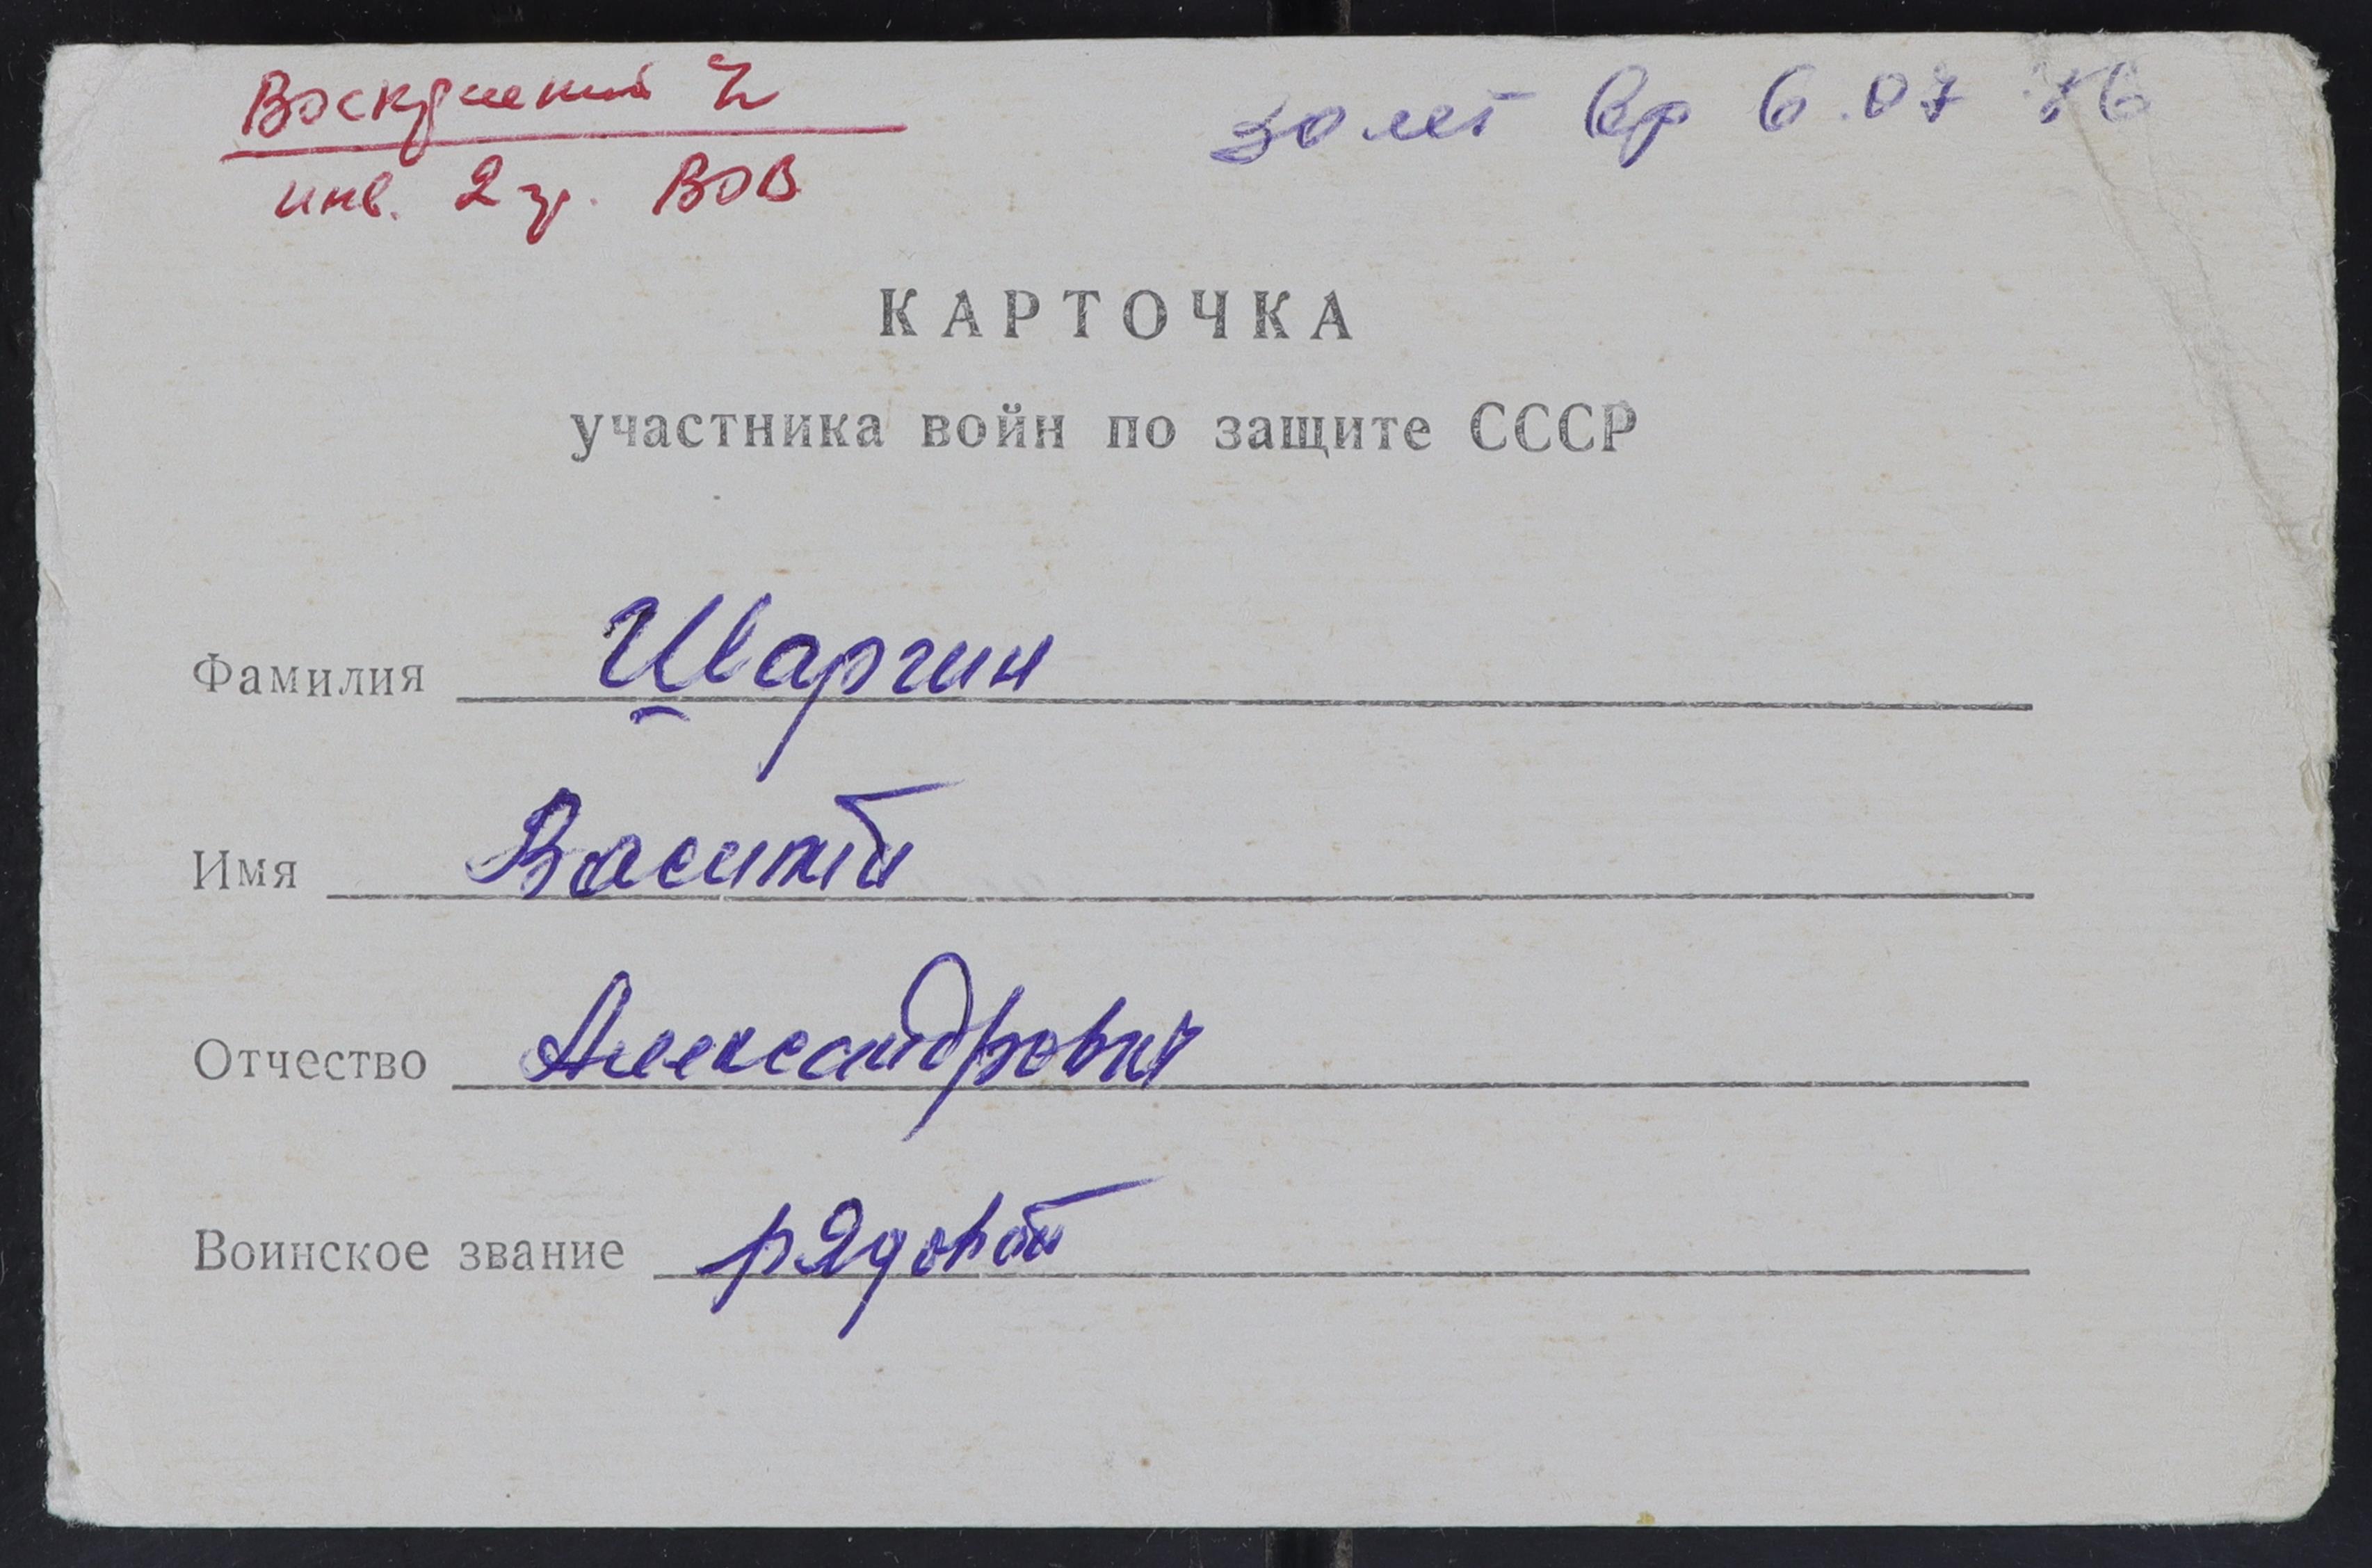 инв. 2 гр. ВОВ
40 лет Вр 6.07 86
КАРТОЧКА
участника войн по защите СССР
Фамилия Шваргин
Имя Василий
Отчество Александрович
Воинское звание рядовой